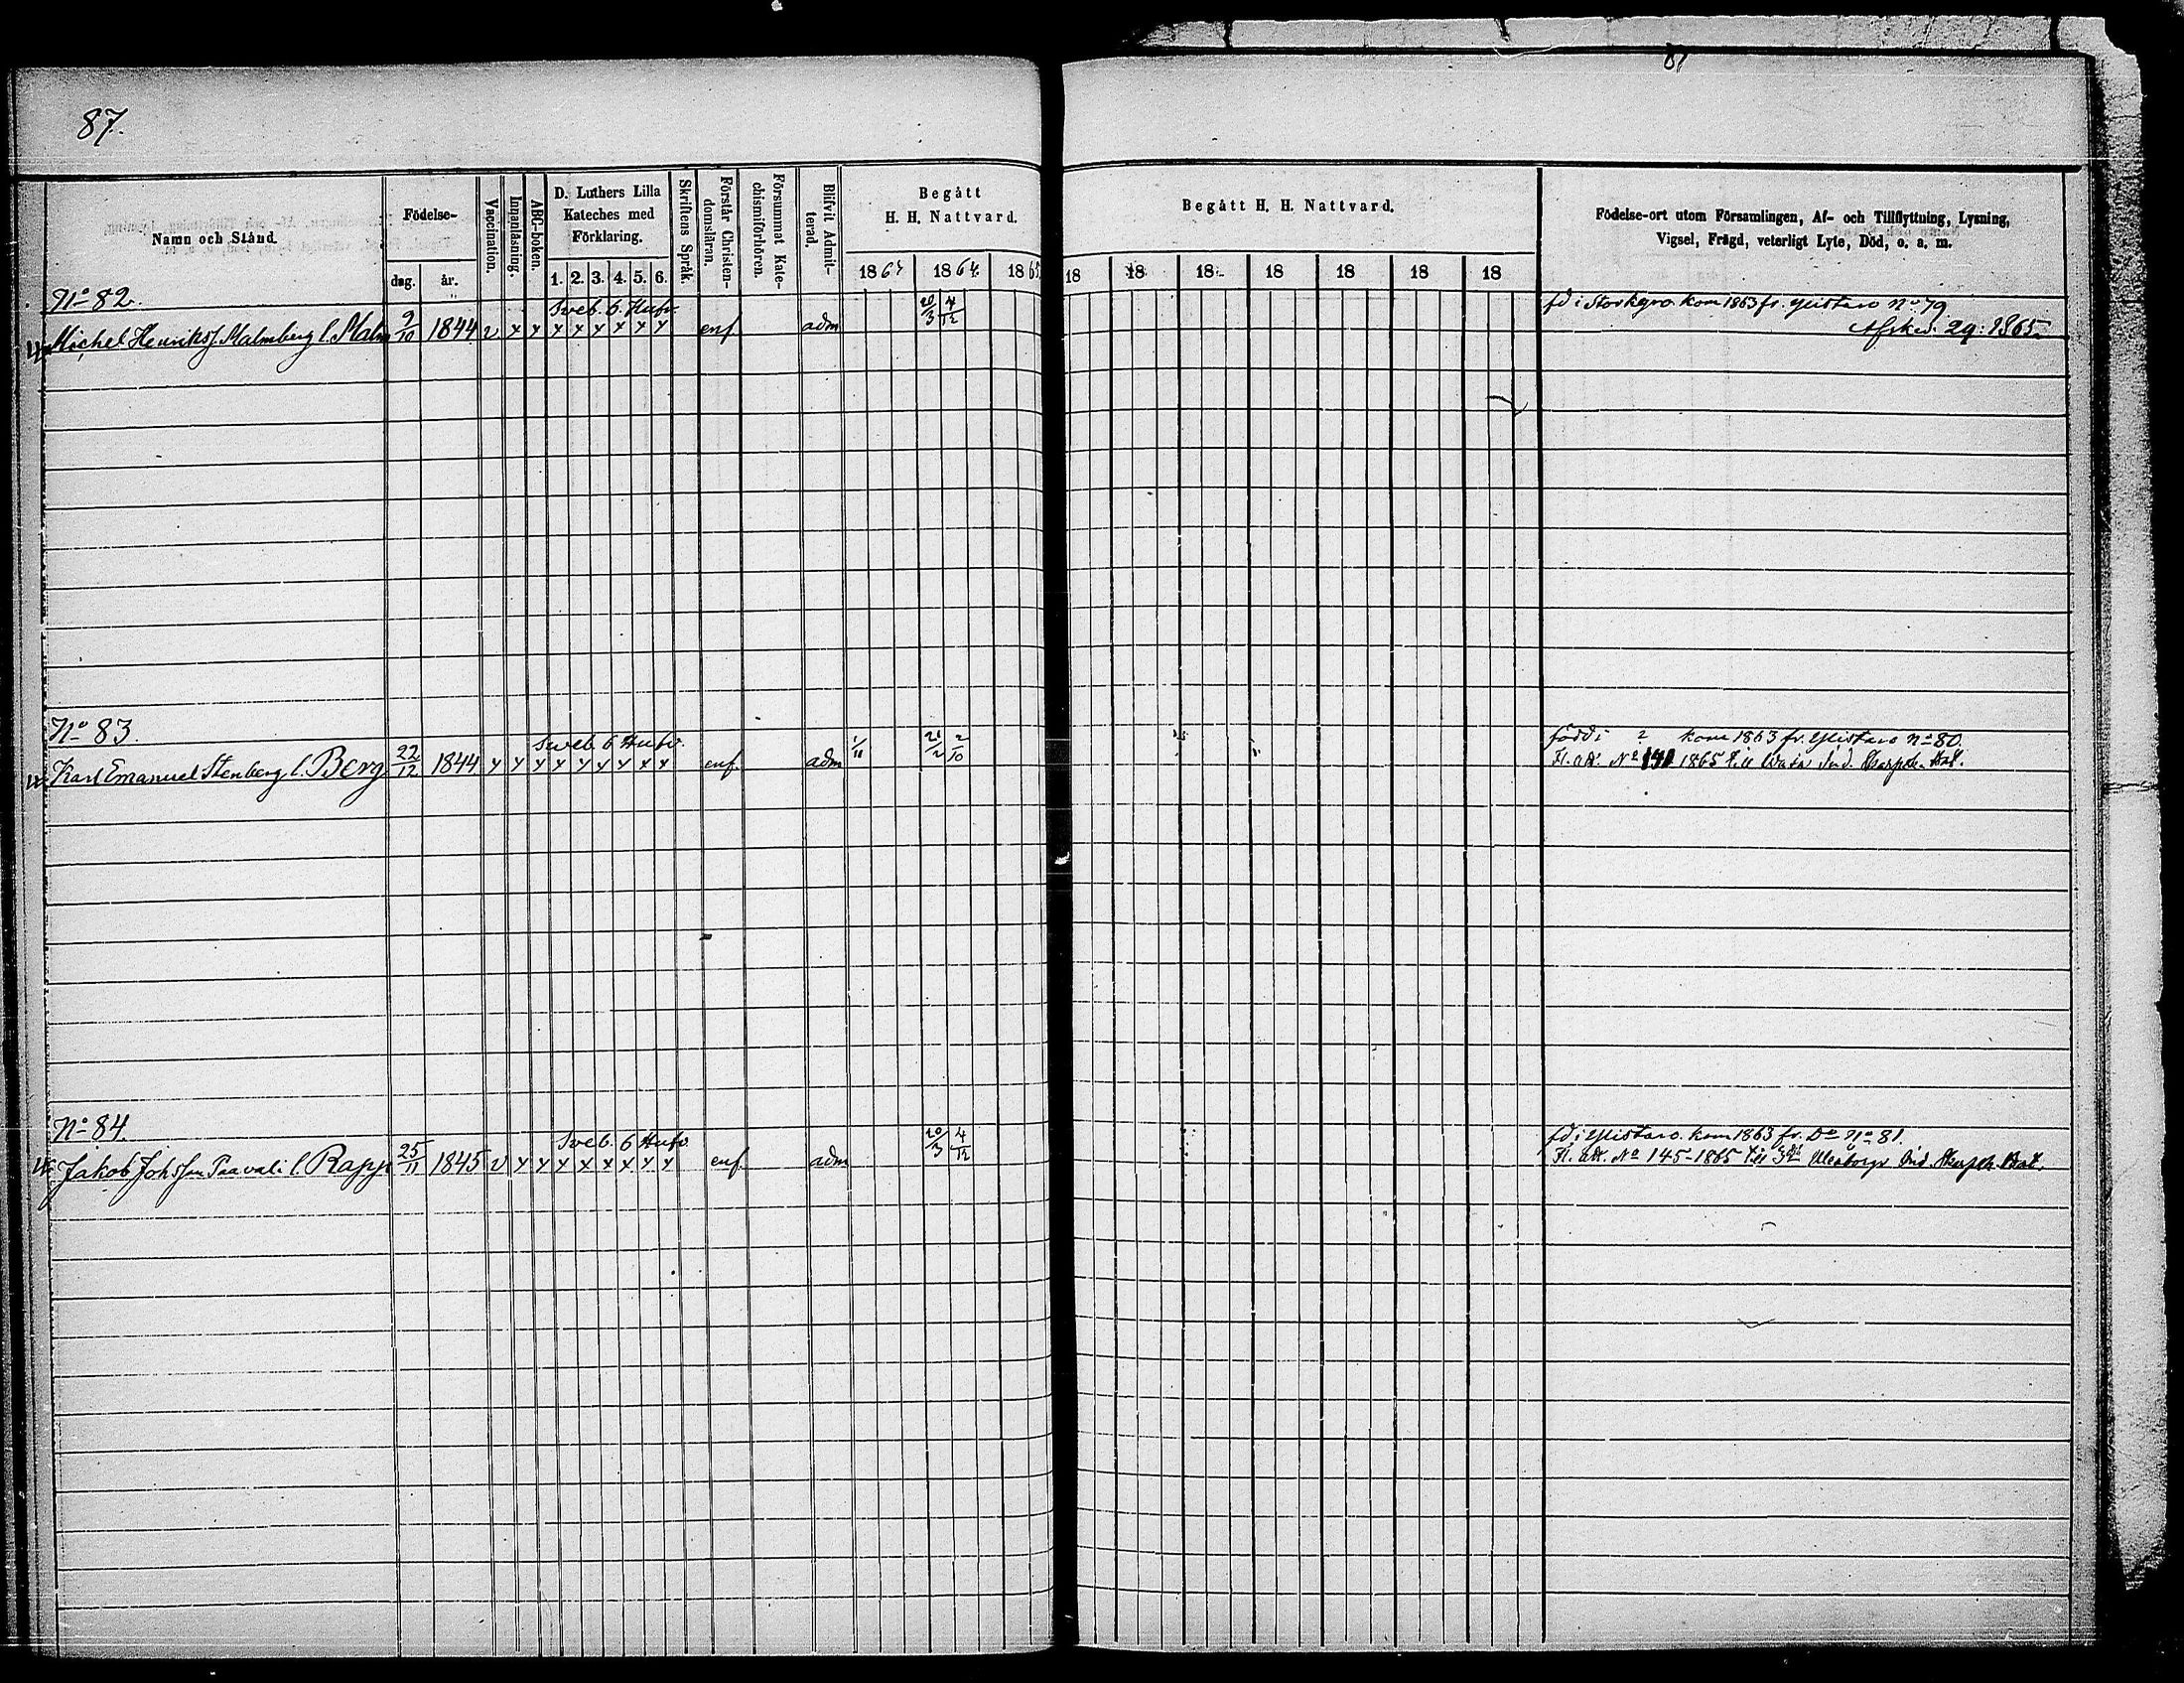 87.
87
Namn och Stånd.
Födelse-
dag. år.
Vaccination.
Innanläsning.
ABC-boken.
D. Luthers Lilla
Kateches med
Förklaring.
1. 2. 3. 4. 5. 6.
Skriftens Språk.
Förstår Christen-
domsläran.
Försummat Kate-
chismiförhören.
Blifvit Admit-
terad.
Begått
H. H. Nattvard.
1863 1864 1865
Begått H. H. Nattvard.
18 18 18 18 18 18 18
Födelse-ort utom Församlingen, Af- och Tillflyttning, Lysning,
Vigsel, Frägd, veterligt Lyte, Död, o. a. m.
No 82.
Sveb. 6. Hufv.
20/3 4/12
fd i Storkyro. kom 1863 fr. Ylistaro No 79
Michel Henriks. Malmberg l. Malm 9/10 1844 v x x x x x x x x enf adm
Afsked. 29: 1865.
No 83.
Sveb. 6 Hufv.
1/11 21/2 2/10
född i ? kom 1863 fr. Ylistaro No 80.
Karl Emanuel Stenberg l. Berg 22/12 1844 x x x x x x x x x enf adm
Fl. att. No 141 1865 till Wasa Ind. Skarpsk. Bat.
No 84.
Sveb. 6 Hufv.
20/3 4/12
fd i Ylistaro. kom 1863 fr. Do No 81.
Jakob Johsson Paavali l. Rapp 25/11 1845 v x x x x x x x x enf adm
Fl. att. No 145-1865 till Uleåborgs Ind. Skarpsk. Bat.